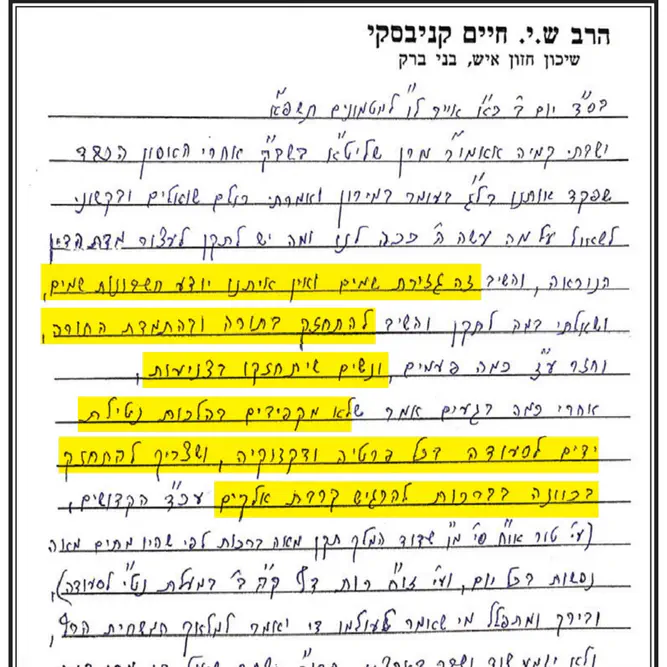 הרב ש.י. חיים קניבסקי
שיכון חזון איש, בני ברק
בס"ד יום ב' כ"א אייר ל"ו למטמונים תשפ"א
ישבתי קמיה אאמו"ר מרן שליט"א בשבת אחרי האסון הכבד
שפקד אותנו בל"ג בעומר במירון ואמרתי כולם שואלים ובקשוני
לשאול על מה עשה ה' ככה לנו ומה יש לתקן לעצור מדת הדין
הנוראה, והשיב זה גזירת שמים ואין איתנו יודע חשבונות שמים,
ושאלתי במה לתקן והשיב להתחזק בתורה ובהתמדת התורה,
וחזר ע"ז כמה פעמים, ונשים שיתחזקו בצניעות,
אחרי כמה רגעים אמר שלא מקפידים בהלכות נטילת
ידים לסעודה בכל פרטיה ודקדוקיה, ושצריך להתחזק
בכוונה בברכות להרגיש קרבת אלקים עכ"ד הקדושים,
(עי' טור או"ח סי' מ"ו שדוד המלך תקן מאה ברכות לפי שהיו מתים מאה
נפשות בכל יום, ועי' זוה"ח רות דף ק"ה ב' במעלת נט"י לסעודה),
ובירך ומתפלל מי שאמר לעולמו די יאמר למלאך המשחית הרף,